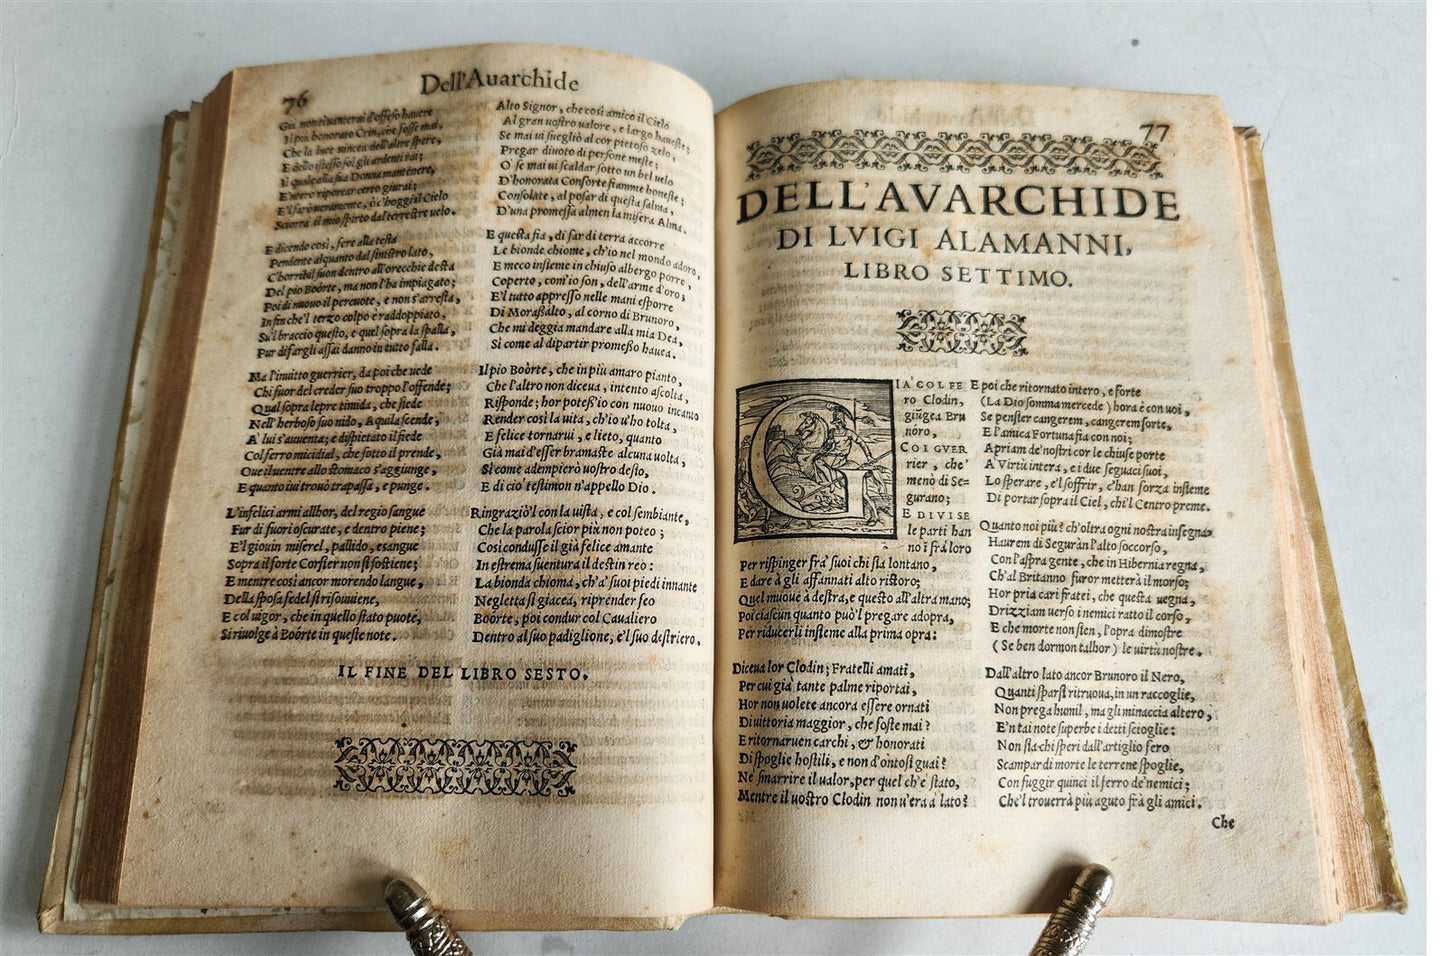 76
Dell'Auarchide
Già non ti vanterai d'offeso hauere
Il più honorato Crin, che fosse mai,
Che la luce vincea dell'altre spere,
E dello istesso sol gli ardenti rai;
Il qual alla sua Donna mantenere,
E vero riportar certo giurai;
E'l farò veramente, ò c'hoggi il Cielo
Sciorrà il mio spirto dal terrestre velo.
E dicendo così, fere alla testa
Pendente alquanto dal sinistro lato,
C'horribil suon dentro all'orecchie desta
Del pio Boórte, ma non l'ha impiagato;
Poi di nuouo il percuote, e non s'arresta,
Infin che'l terzo colpo e raddoppiato,
Su'l braccio questo, e quel sopra la spalla,
Pur di fargli assai danno in tutto falla.
Ma l'inuitto guerrier, da poi che uede
Chi fuor del creder suo troppo l'offende;
Qual sopra lepre timida, che siede
Nell'herboso suo nido, Aquila scende,
A' lui s'auuenta; e dispietato il fiede
Col ferro micidial, che sotto il prende,
Oue il uentre allo stomaco s'aggiunge,
E quanto iui trouò trapassa, e punge.
L'infelici armi allhor, del regio sangue
Fur di fuori oscurate, e dentro piene;
E'l giouin miserel, pallido, esangue
Sopra il forte Corsier non si sostiene;
E mentre così ancor morendo langue,
Della sposa fedel si risouuiene,
E col uigor, che in quello stato puote,
Si riuolge à Boórte in queste note.
Alto Signor, che così amico il Cielo
Al gran uostro ualore, e largo haueste;
Se mai ui suegliò al cor pietoso zelo,
Pregar diuoto di persone meste;
O' se mai ui scaldar sotto un bel uelo
D'honorata Consorte fiamme honeste;
Consolate, al posar di questa salma,
D'una promessa almen la misera Alma.
E questa fia, di far di terra accorre
Le bionde chiome, ch'io nel mondo adoro,
E meco insieme in chiuso albergo porre,
Coperte, com'io son, dell'arme d'oro;
E'l tutto appresso nelle mani esporre
Di Morassalto, al corno di Brunoro,
Che mi deggia mandare alla mia Dea,
Sì come al dipartir promesso hauea.
Il pio Boòrte, che in più amaro pianto,
Che l'altro non diceua, intento ascolta,
Risponde; hor potess'io con nuouo incanto
Render così la uita, ch'io u'ho tolta,
E felice tornarui, e lieto, quanto
Già mai d'esser bramaste alcuna uolta,
Sì come adempierò uostro desio,
E di ciò testimon n'appello Dio.
Ringraziò'l con la uista, e col sembiante,
Che la parola scior più non poteo;
Così condusse il già felice amante
In estrema suentura il destin reo:
La bionda chioma, ch'a' suoi piedi innante
Negletta si giacea, riprender feo
Boórte, poi condur col Caualiero
Dentro al suo padiglione, e'l suo destriero.
IL FINE DEL LIBRO SESTO.
77
DELL'AVARCHIDE
DI LVIGI ALAMANNI,
LIBRO SETTIMO.
GIA' COL FE
ro Clodin,
giũgea Bru
nóro,
COI GVER
rier, che'
menò di Se=
gurano;
E DIVISE
le parti han
no ĩ frà loro
Per rispinger fra' suoi chi sia lontano,
E dare à gli affannati alto ristoro;
Quel muoue à destra, e questo all'altra mano;
Poi ciascun quanto può'l pregare adopra,
Per riducerli insieme alla prima opra:
Diceua lor Clodin; Fratelli amati,
Per cui già tante palme riportai,
Hor non uolete ancora essere ornati
Di uittoria maggior, che foste mai?
E ritornaruen carchi, & honorati
Di spoglie hostili, e non d'ontosi guai?
Ne' smarrire il ualor, per quel ch'è stato,
Mentre il uostro Clodin non u'era à lato?
E poi che ritornato intero, e forte
(La Dio somma mercede) hora è con uoi,
Se pensier cangerem, cangerem sorte,
E l'amica Fortuna fia con noi;
Apriam de' nostri cor le chiuse porte
A' Virtù intera, e i due seguaci suoi,
Lo sperare, e'l soffrir, c'han forza insieme
Di portar sopra il Ciel, chi'l Centro preme.
Quanto noi più? ch'oltra ogni nostra insegna
Haurem di Seguràn l'alto soccorso,
Con l'aspra gente, che in Hibernia regna,
Ch'al Britanno furor metterà il morso;
Hor pria cari frati, che questa uegna,
Drizziam uerso i nemici ratto il corso,
E che morte non sien, l'opra dimostre
(Se ben dormon talhor) le uirtù nostre.
Dall'altro lato ancor Brunoro il Nero,
Quanti sparsi ritruoua, in un raccoglie,
Non prega humil, ma gli minaccia altero,
E'n tai note superbe i detti scioglie:
Non sia chi speri dall'artiglio fero
Scampar di morte le terrene spoglie,
Con fuggir quinci il ferro de' nemici;
Che'l trouerrà più aguto frà gli amici.
Che